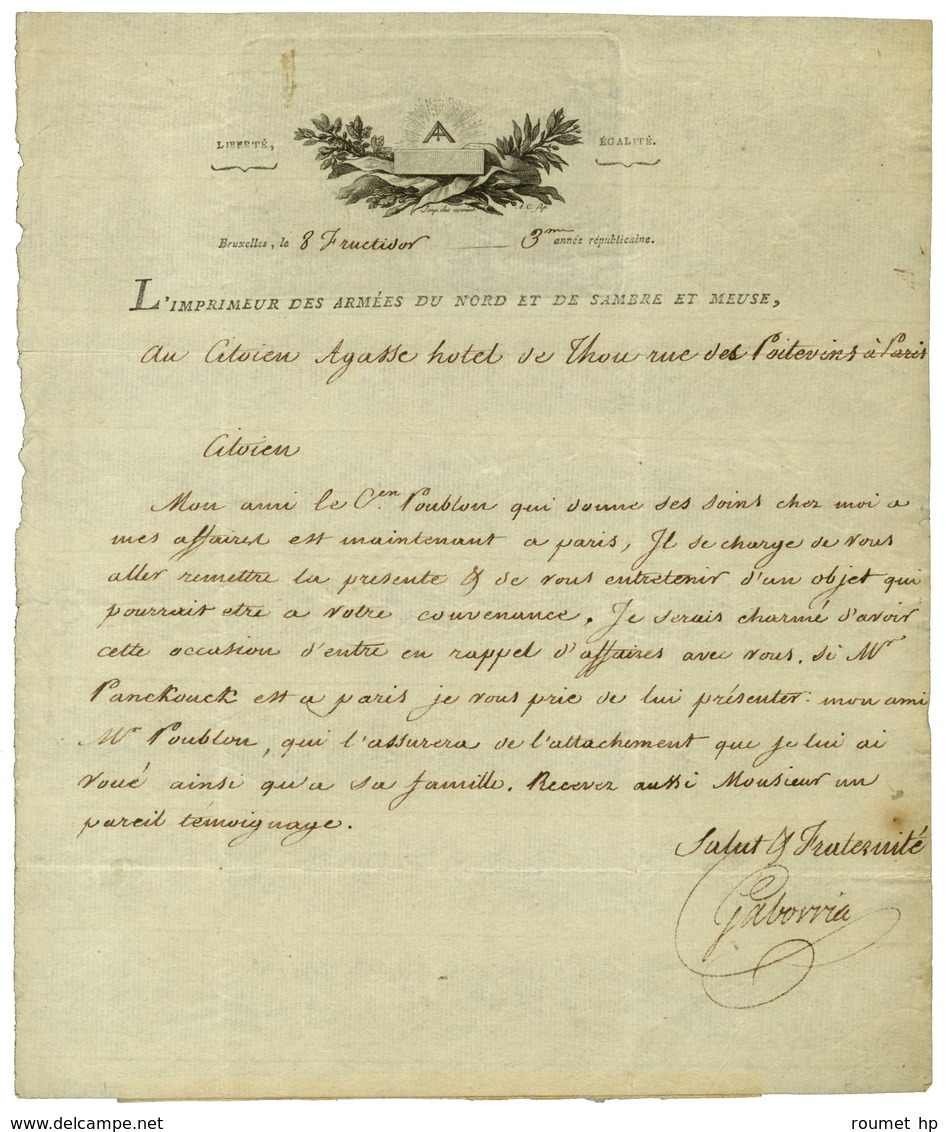 LIBERTÉ,
ÉGALITÉ.
Imp. des armées
Bruxelles, le 8 Fructidor 3me année républicaine.
L'IMPRIMEUR DES ARMÉES DU NORD ET DE SAMBRE ET MEUSE,
Au Citoien Agasse hotel de Thou rue des Poitevins à Paris
Citoien
Mon ami le Cen. Poublon qui donne ses soins chez moi a
mes affaires est maintenant a paris, Il se charge de vous
aller remettre la presente & de vous entretenir d'un objet qui
pourrait etre a votre convenance. Je serais charmé d'avoir
cette occasion d'entre en rappel d'affaires avec vous. si Mr
Panckouck est a paris je vous prie de lui présenter mon ami
Mr Poublon, qui l'assurera de l'attachement que je lui ai
voué ainsi qu'a sa famille. Recevez aussi Monsieur un
pareil témoignage.
Salut & Fraternité
Gaborria
www.delcampe.net
roumet hp